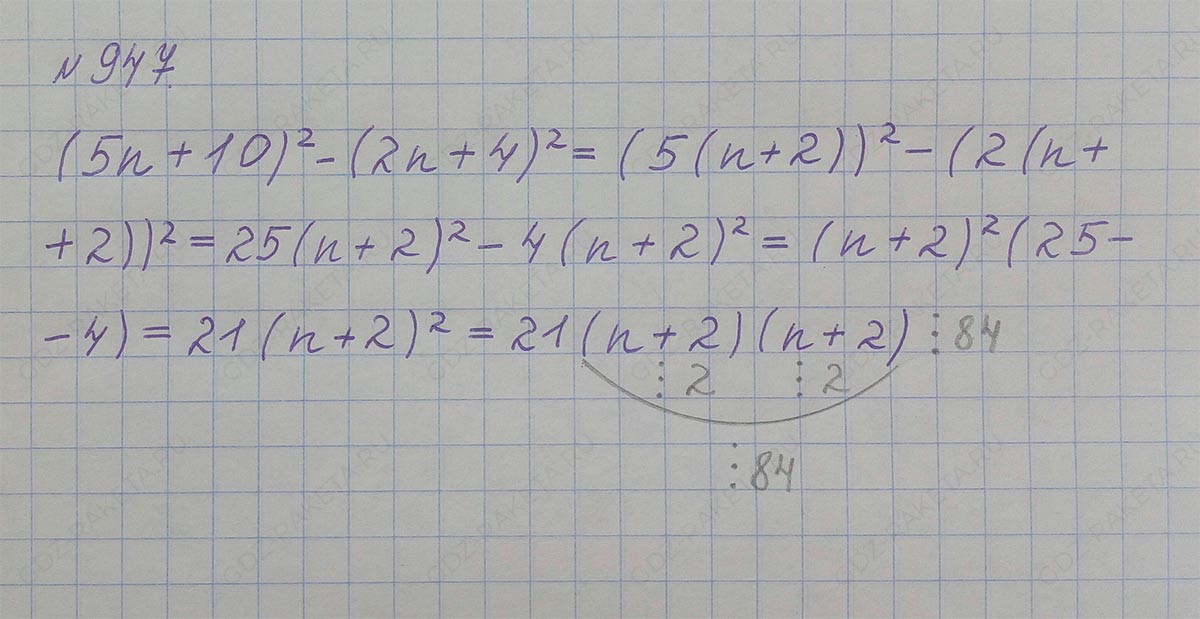 № 947.
(5n+10)²-(2n+4)²=(5(n+2))²-(2(n+
+2))²=25(n+2)²-4(n+2)²=(n+2)²(25-
-4)=21(n+2)²=21(n+2)(n+2)⋮84
⋮2 ⋮2
⋮84
GDZ-RAKETA.RU